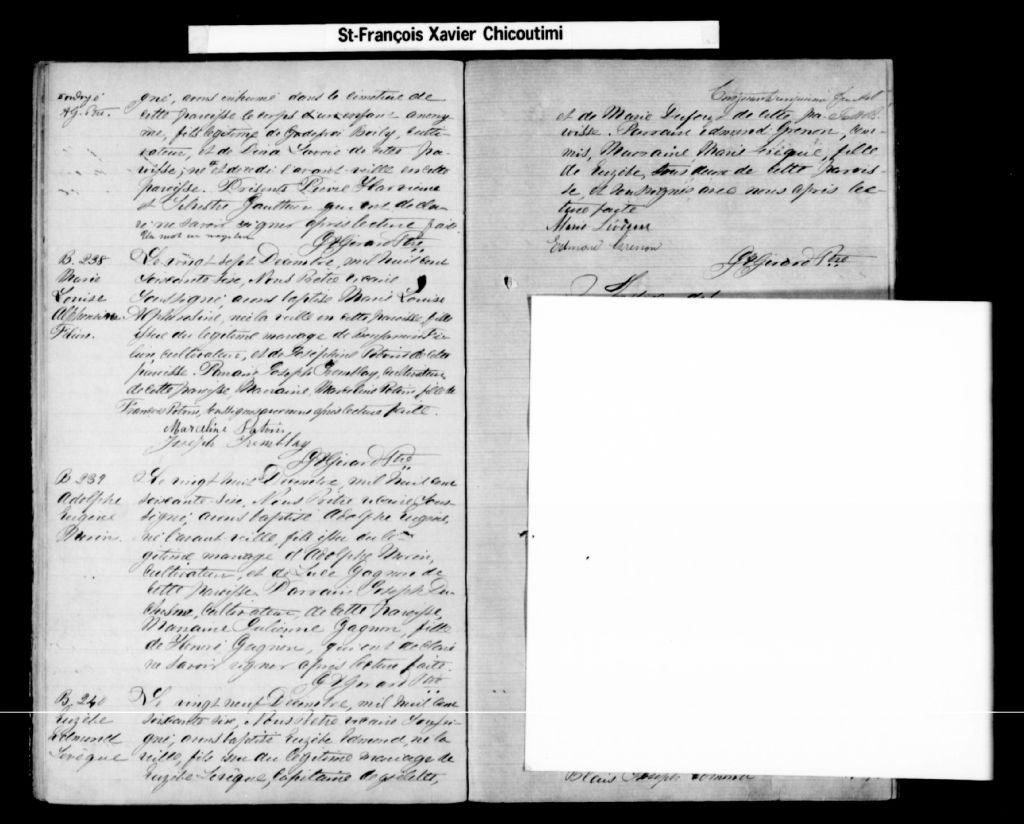 St-François Xavier Chicoutimi
gné, avons inhumé dans le cimetière de
cette paroisse le corps d'un enfant anony-
me, fils légitime de Godefroi Boily, culti-
vateur, et de Dina Savoie de cette pa-
roisse; né et décédé l'avant-veille en cette
paroisse. Présents Pierre
et Sylvestre Gauthier qui ont décla-
ré ne savoir signer après lecture faite.
Ptre
B. 238
Marie
Louise
Alphonsine
Le vingt sept Décembre, mil huit cent
soixante six, Nous Prêtre vicaire
soussigné avons baptisé Marie Louise
Alphonsine, née la veille en cette paroisse, fille
issue du légitime mariage de
cultivateur, et de Joséphine Potvin de cette
paroisse. Parrain Joseph Tremblay, cultivateur
de cette paroisse, Marraine, Marceline Potvin fille de
François Potvin, soussignés avec nous après lecture faite.
Marceline Potvin
Joseph Tremblay
Ptre
B. 239
Adolphe
Eugène
Morin.
Le vingt huit Décembre, mil huit cent
soixante six, Nous Prêtre vicaire sous-
signé, avons baptisé Adolphe Eugène,
né l'avant veille, fils issu du lé-
gitime mariage d'Adolphe Morin,
cultivateur, et de Julie Gagnon de
cette paroisse. Parrain Joseph Du-
chesne, cultivateur, de cette paroisse,
Marraine Julienne Gagnon, fille
de Henri Gagnon, qui ont déclaré
ne savoir signer après lecture faite.
Ptre
B. 240
Euzèbe
Edmund
Lévêque
Le vingt neuf Décembre, mil huit cent
soixante six, Nous Prêtre vicaire soussi-
gné, avons baptisé Euzèbe Edmund, né la
veille, fils issu du légitime mariage de
Euzèbe Lévêque, Capitaine de goélette,
et de Marie Dufour de cette pa-
roisse. Parrain Edmund Grenon, com-
mis, Marraine Marie Lévêque, fille
de Euzèbe, tous deux de cette parois-
se, et soussignés avec nous après lec-
ture faite
Marie Lévêque
Edmond Grenon
Ptre
Joseph